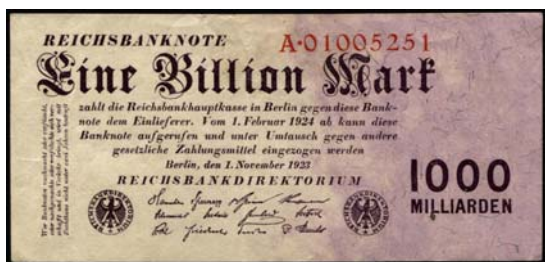 REICHSBANKNOTE
A·01005251
Eine Billion Mark
zahlt die Reichsbankhauptkasse in Berlin gegen diese Bank-
note dem Einlieferer. Vom 1. Februar 1924 ab kann diese
Banknote aufgerufen und unter Umtausch gegen andere
gesetzliche Zahlungsmittel eingezogen werden
Berlin, den 1. November 1923
REICHSBANKDIREKTORIUM
1000
MILLIARDEN